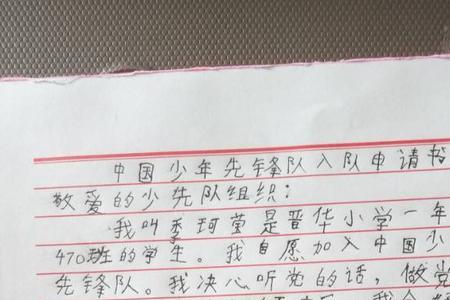 中国少年先锋队入队申请书
敬爱的少先队组织：
我叫季珂萱是晋华小学一年
470班的学生。我自愿加入中国少
先锋队。我决心听党的话，做党